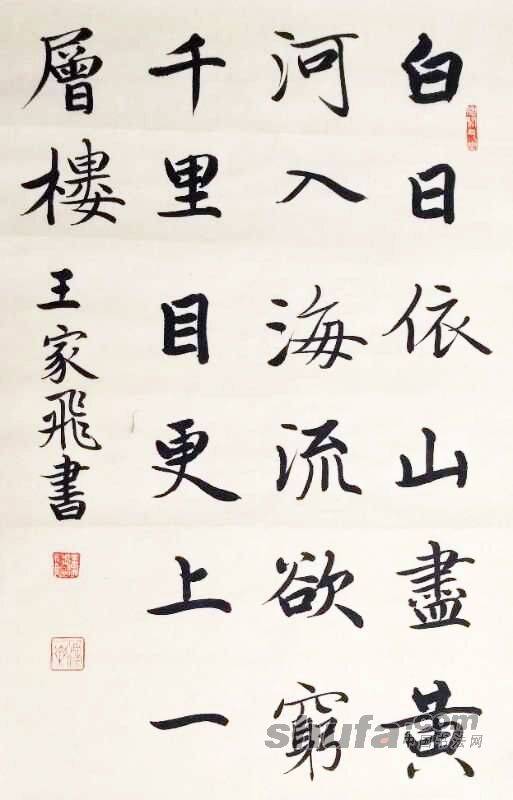 白日依山盡黃
河入海流欲窮
千里目更上一
層樓
王家飛書
shufa.com
中国书法网